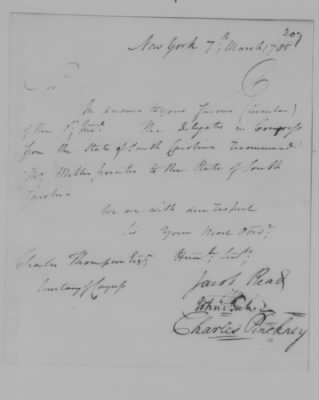 207
New York 7th March 1785
Sir
In answer to your favour (circular)
of the 1st Inst. The Delegates in Congress
from the State of South Carolina recommend
Mr Miller printer to the State of South
Carolina
We are with due respect
Sir Your Most Obedt
Charles Thompson Esqr Humle Servts
Secretary of Congress
Jacob Read
John Bull
Charles Pinckney